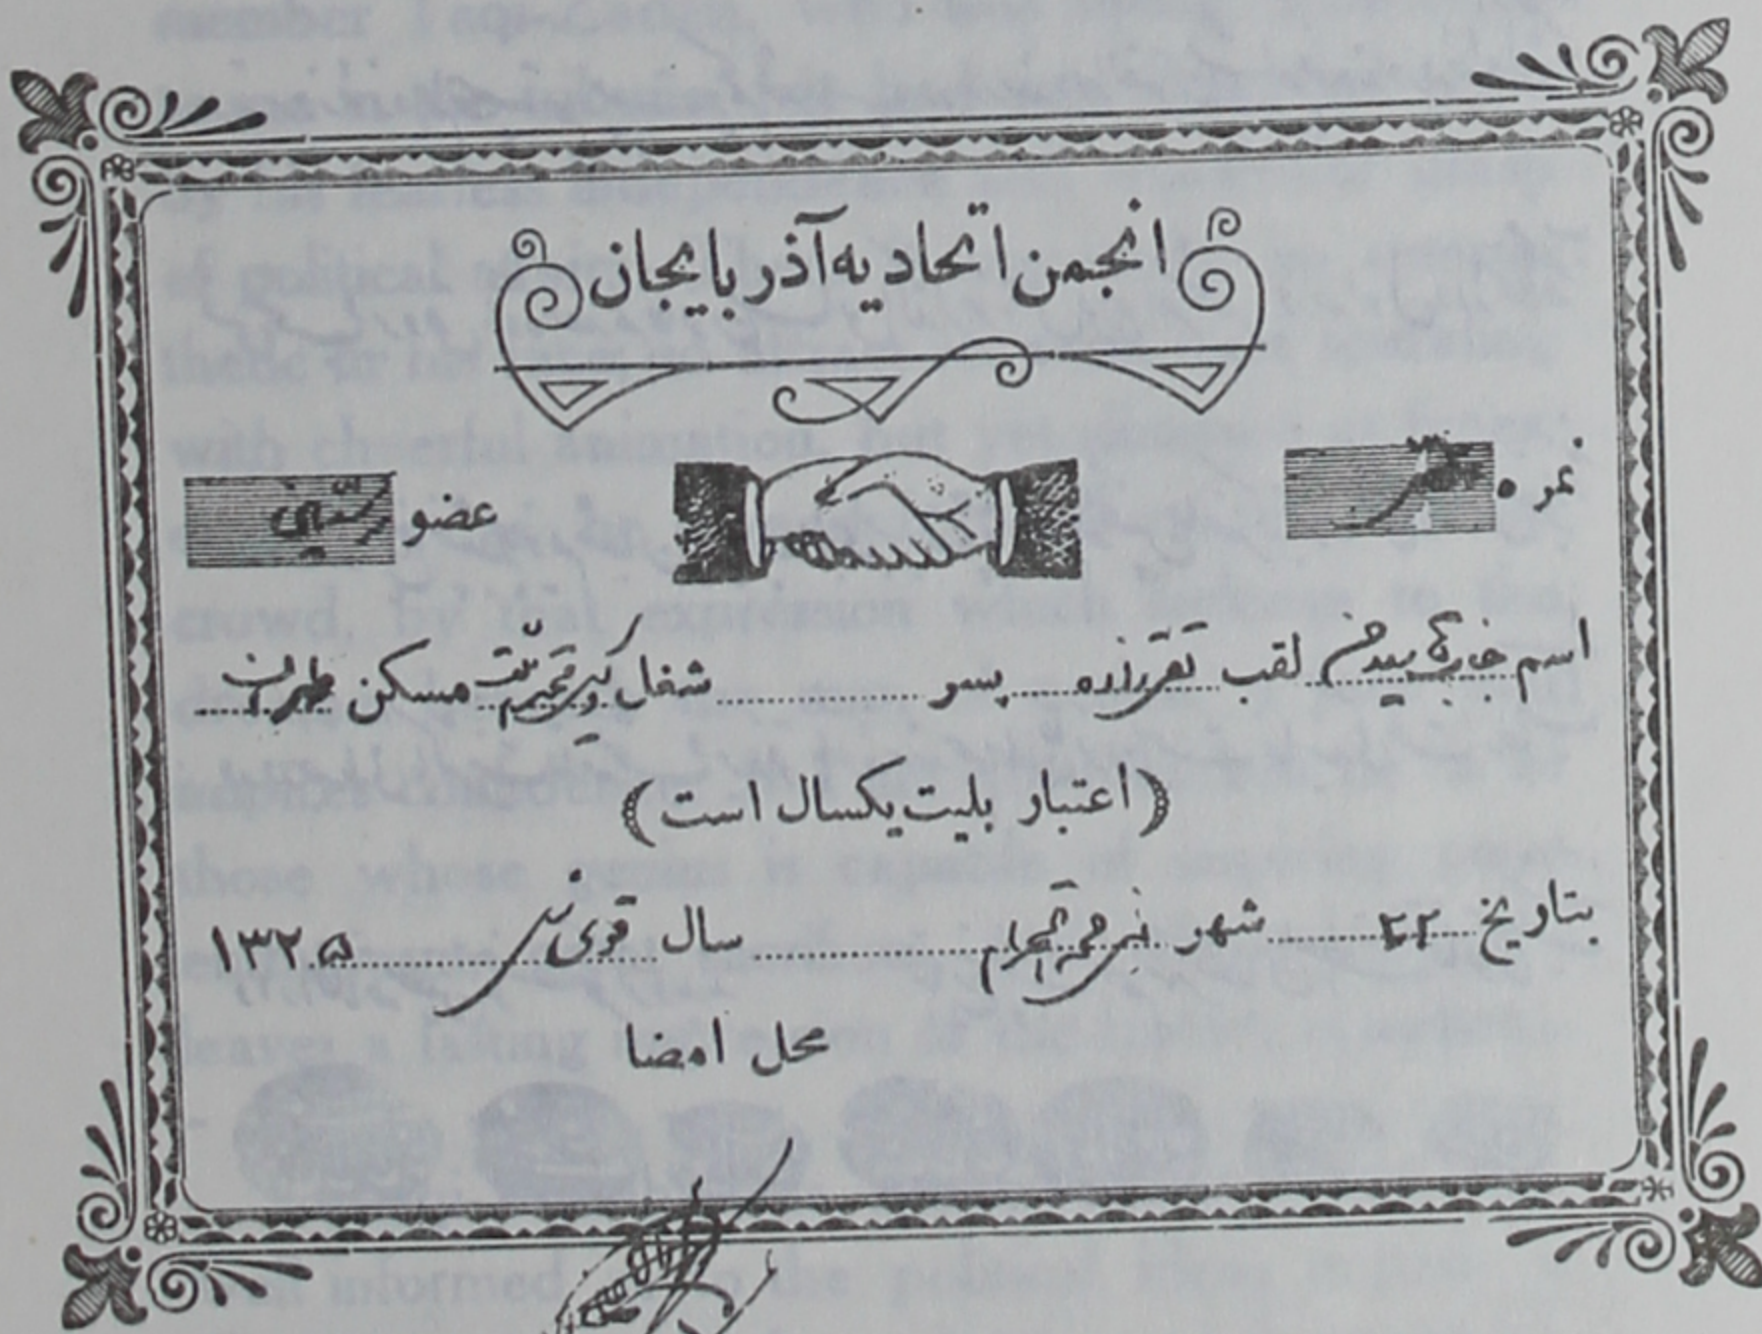 انجمن اتحادیه آذربایجان
نمره
عضو رسمی
اسم جناب آقا سید حسن لقب تقی‌زاده پسر شغل وکیل مسکن طهران
(اعتبار بلیت یکسال است)
بتاریخ ۲۲ شهر محرم الحرام سال قوی ئیل ۱۳۲۵
محل امضا